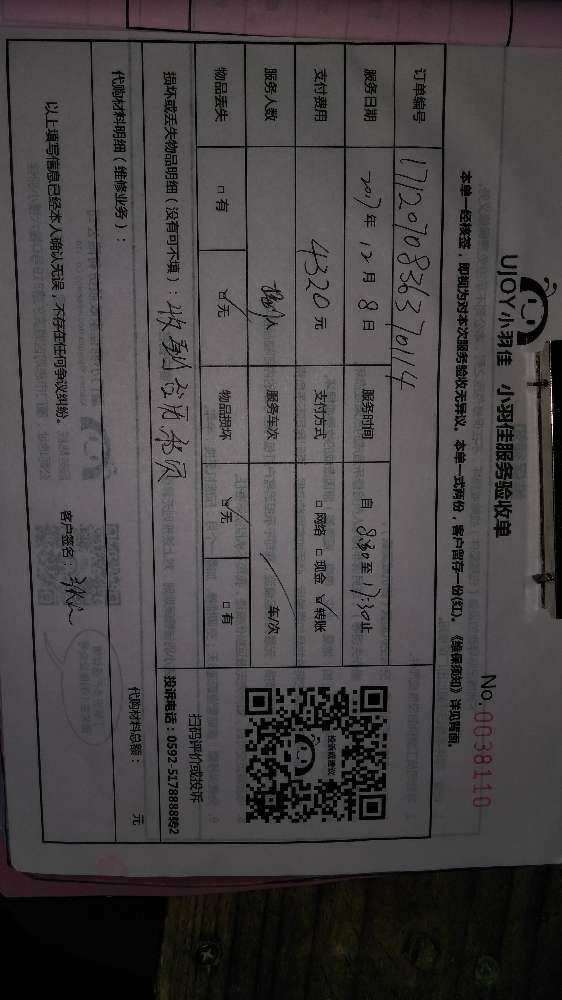 UJOY小羽佳 小羽佳服务验收单
No.0038110
本单一经核签，即视为对本次服务验收无异议。本单一式两份，客户留存一份(红)。《维保须知》详见背面。
订单编号 1712070836370114
服务日期 2017年 12月 8日 服务时间 自 8:30至 17:30止
支付费用 4320元 支付方式 □网络 □现金 ☑转账
服务人数 人 服务车次 车/次
物品丢失 □有 ☑无 物品损坏 ☑无 □有
损坏或丢失物品明细（没有可不填）：
投诉或建议
扫码评价或投诉
投诉电话：0592-5178888转2
代购材料明细（维修业务）：
代购材料总额： 元
以上填写信息已经本人确认无误，不存在任何争议纠纷。
客户签名：